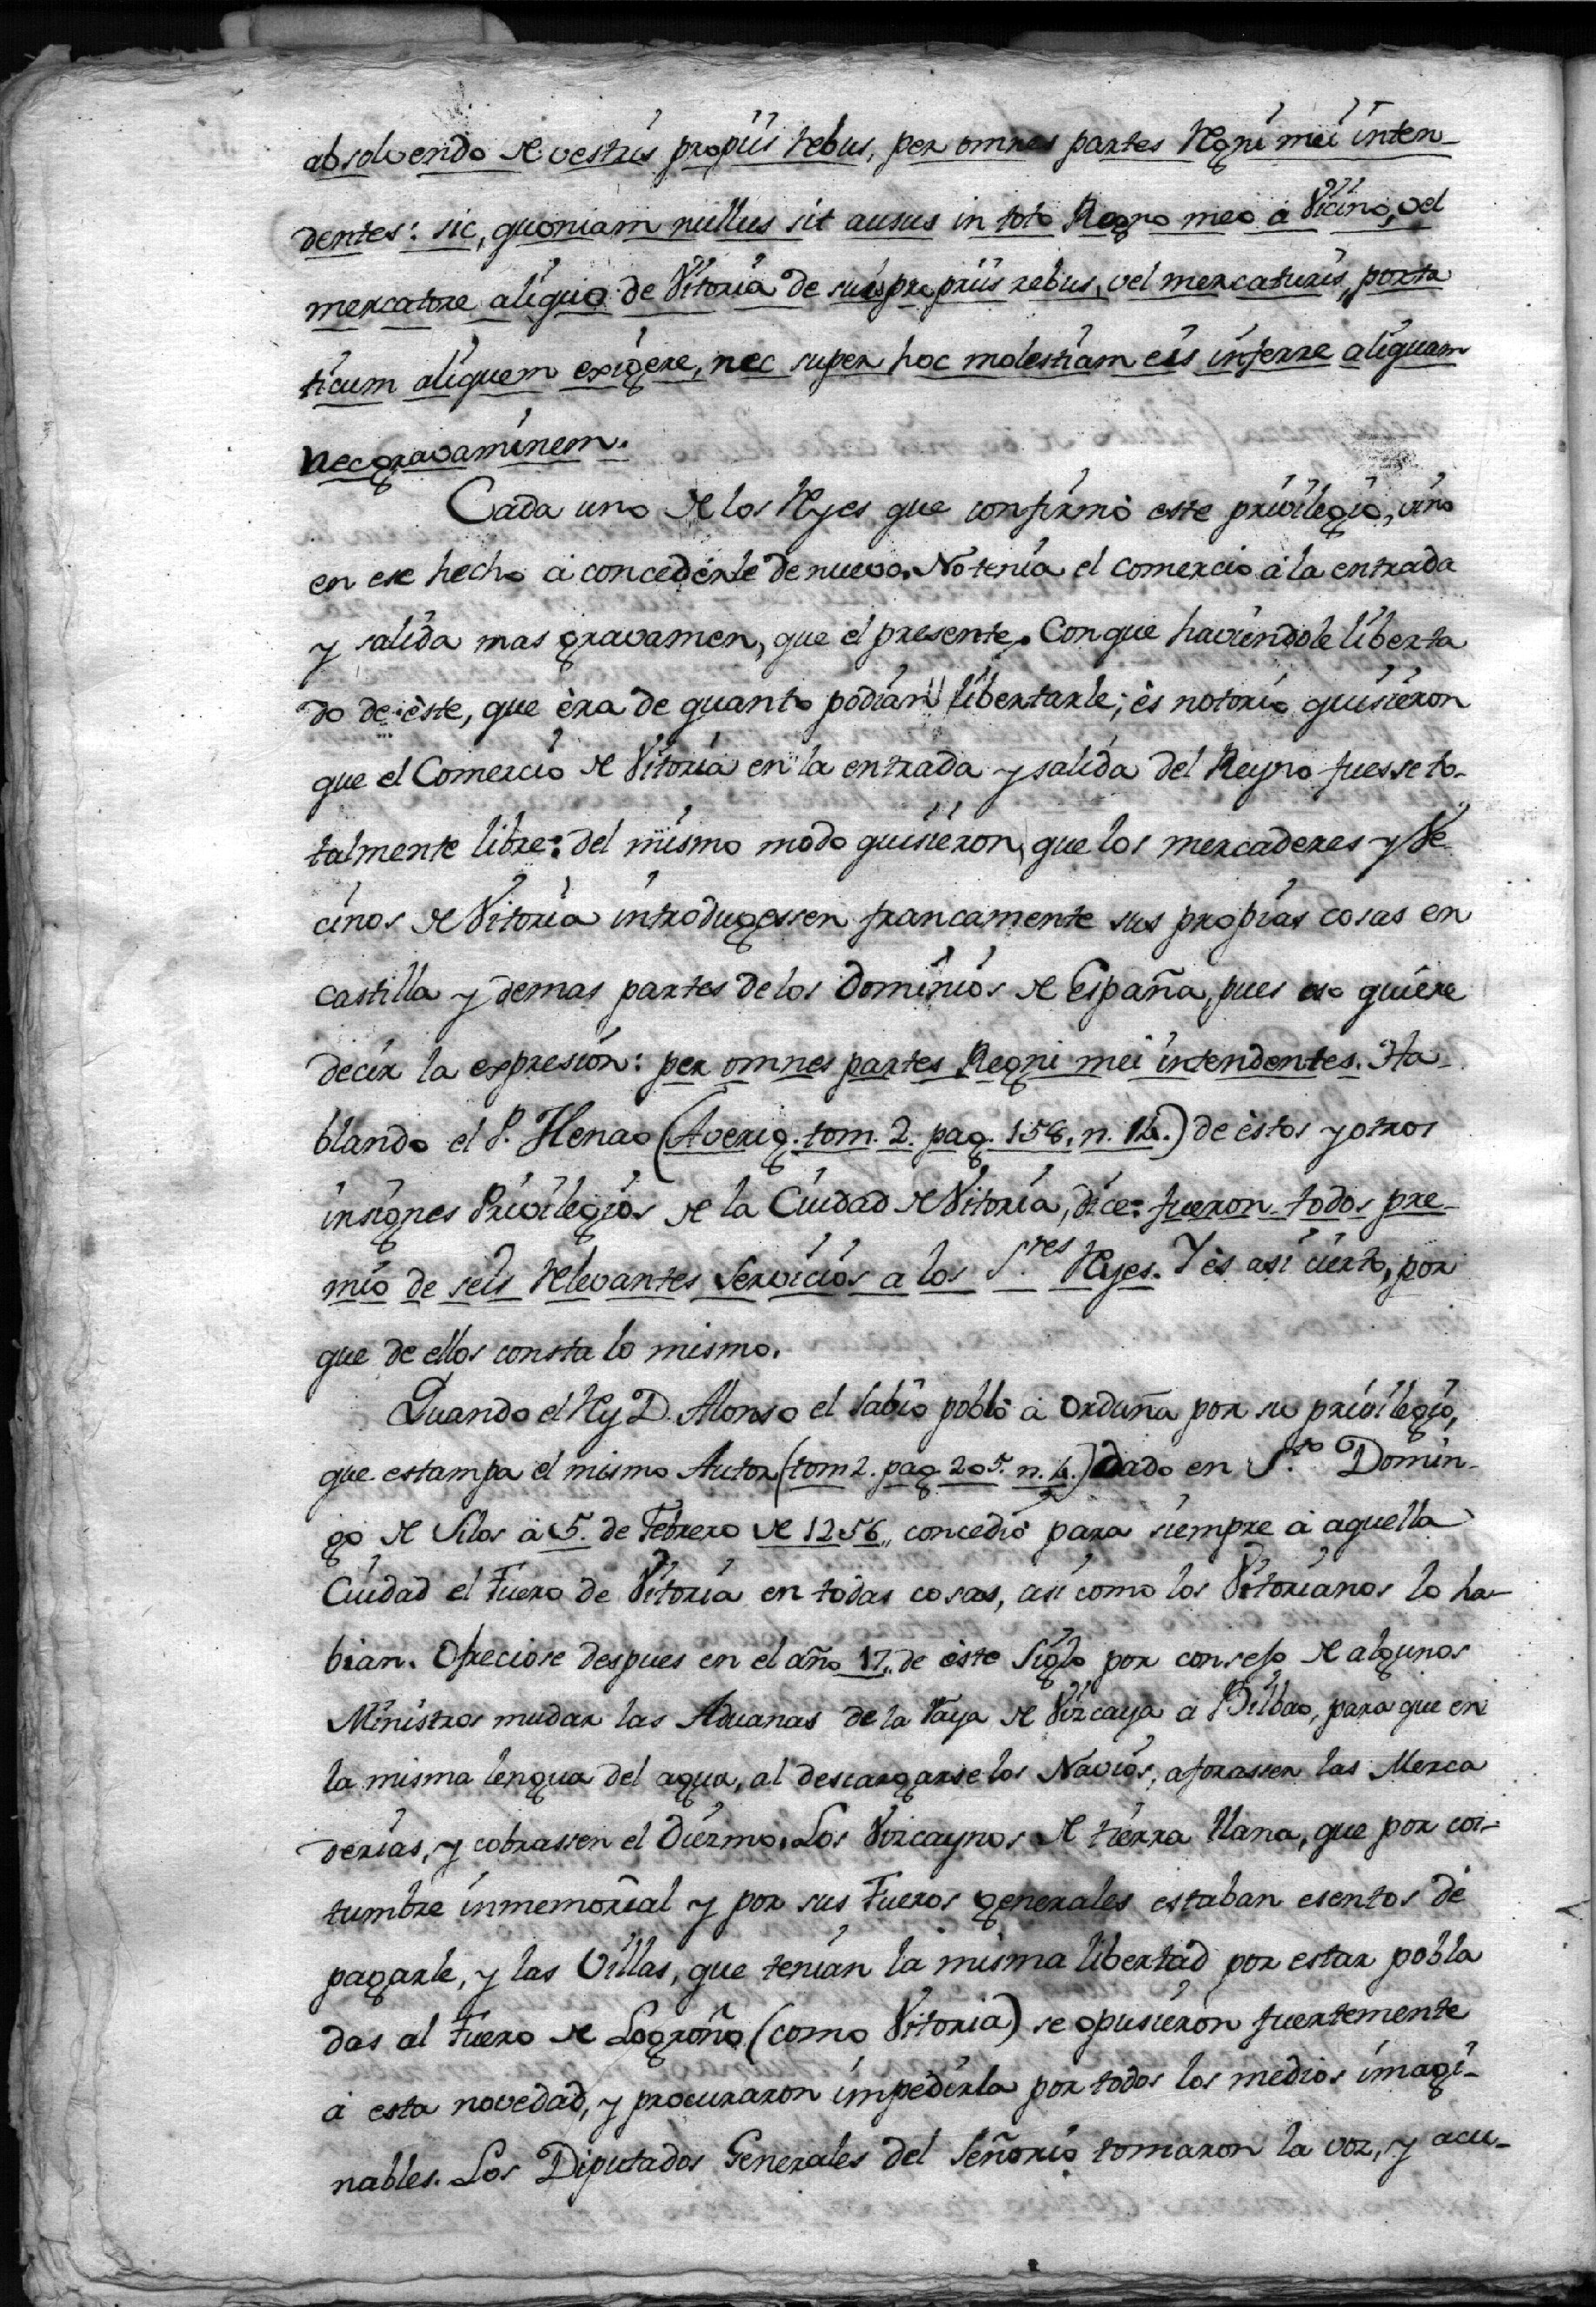 absolvendo de vestris propiis rebus, per omnes partes Regni mei inten-
dentes: sic, quoniam nullus sit ausus in toto Regno meo á Vicino, vel
mercatore aliquo de Vitoria de suis propriis rebus, vel mercaturis, porta
ticum aliquem exigere, nec super hoc molestiam eis inferre aliquam
nec gravaminem.
Cada uno de los Reyes que confirmò este privilegio, vino
en ese hecho à concederle de nuevo. No tenia el comercio à la entrada
y salida mas gravamen, que el presente. Conque haviendole liberta
do de èste, que èra de quanto podian libertarle; ès notorio quisieron
que el Comercio de Vitoria en la entrada y salida del Reyno fuesse to-
talmente libre: del mismo modo quisieron, que los mercaderes y Ve
cinos de Vitoria introdugessen francamente sus propias cosas en
Castilla y demas partes de los Dominios de España, pues eso quiere
decir la expresión: per omnes partes Regni mei intendentes. Ha-
blando el P. Henao (Averig. tom. 2. pag. 158. n. 14.) de èstos y otros
insignes Privilegios de la Ciudad de Vitoria, dice: fueron todos pre-
mio de seis relevantes servicios a los S.res Reyes. Y ès asi cierto, por
que de ellos consta lo mismo.
Quando el Rey D. Alonso el sabio poblò à Orduña por su privilegio,
que estampa el mismo Autor (tom 2. pag 205. n. 4.) dado en S.to Domin-
go de Silos à 5. de Febrero de 1256,, concediò para siempre à aquella
Ciudad el Fuero de Vitoria en todas cosas, asi como los Vitorianos lo ha-
bian. Ofreciose despues en el año 17,, de èste Siglo por consejo de algunos
Ministros mudar las Aduanas de la Raya de Vizcaya à Bilbao, para que en
la misma lengua del agua, al descargarse los Navios, aforassen las Merca
derias, y cobrassen el Diezmo. Los Vizcaynos de tierra llana, que por cos-
tumbre inmemorial y por sus Fueros generales estaban esentos de
pagarle, y las Villas, que tenian la misma libertad por estar pobla
das al Fuero de Logroño (como Vitoria) se opusieron fuertemente
à esta novedad, y procuraron impedirla por todos los medios imagi-
nables. Los Diputados Generales del Señorio tomaron la voz, y acu-